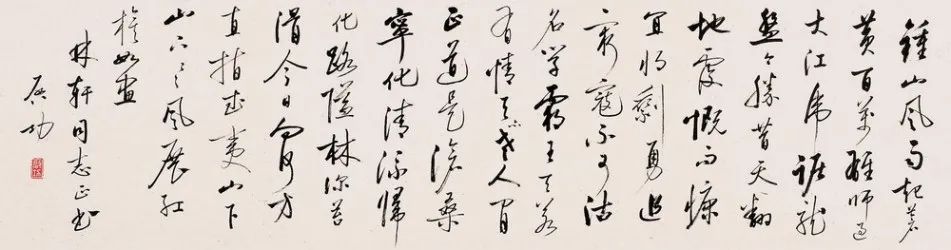 鍾山風雨起蒼
黄百萬雄師過
大江虎踞龍
盤今勝昔天翻
地覆慨而慷
宜將剩勇追
窮寇不可沽
名學霸王天若
有情天亦老人間
正道是滄桑
寧化清流歸
化路隘林深苔
滑今日向何方
直指武夷山下
山下〻風展紅
旗如畫
林軒同志正書
启功